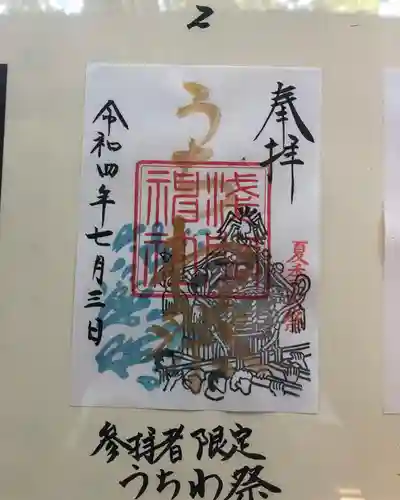 2
奉拝
夏季
浅間神社
うちわ祭
令和四年七月三日
参拝者限定
うちわ祭